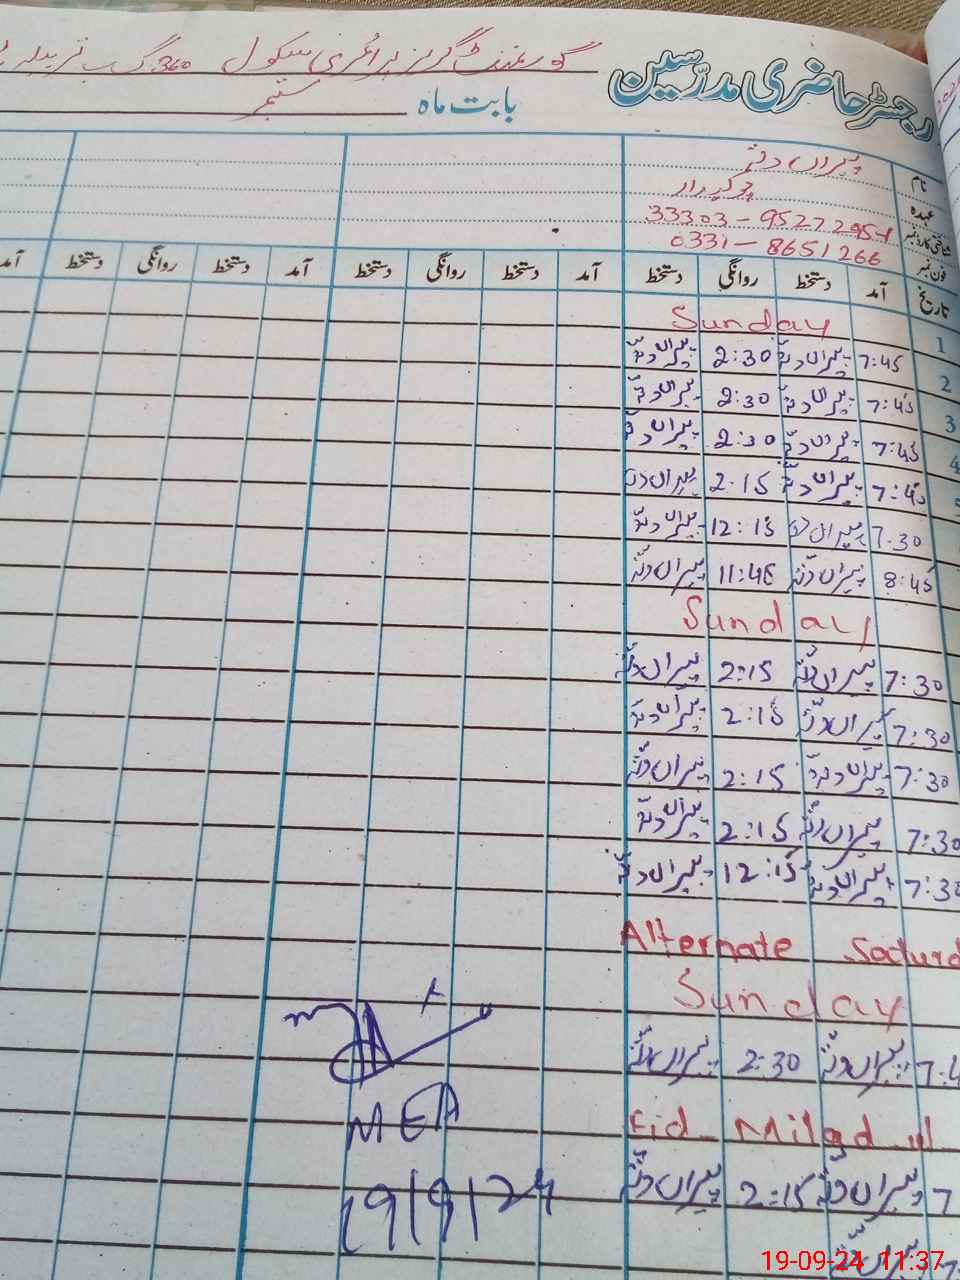 رجسٹر حاضری مدرسین گورنمنٹ گرلز پرائمری سکول 360 گ ب
بابت ماہ ستمبر
نام پیراں دتہ
عہدہ چوکیدار
شناختی کارڈ نمبر 33303-9527295
فون نمبر 0331-8651266
تاریخ آمد دستخط روانگی دستخط آمد دستخط روانگی دستخط آمد دستخط روانگی دستخط آمد
1 Sunday
2 7:45 پیراں دتہ 2:30 پیراں دتہ
3 7:45 پیراں دتہ 2:30 پیراں دتہ
4 7:45 پیراں دتہ 2:30 پیراں دتہ
7:45 پیراں دتہ 2.15 پیراں دتہ
7.30 پیراں دتہ 12:15 پیراں دتہ
8:45 پیراں دتہ 11:45 پیراں دتہ
Sunday
7:30 پیراں دتہ 2:15 پیراں دتہ
7:30 پیراں دتہ 2:15 پیراں دتہ
7:30 پیراں دتہ 2:15 پیراں دتہ
7:30 پیراں دتہ 2:15 پیراں دتہ
7:30 پیراں دتہ 12:15 پیراں دتہ
Alternate Saturd
Sunday
7:4 پیراں دتہ 2:30 پیراں دتہ
Eid Milad ul
7 پیراں دتہ 2:15 پیراں دتہ
7: پیراں دتہ
MEA
19/9/24
19-09-24 11:37